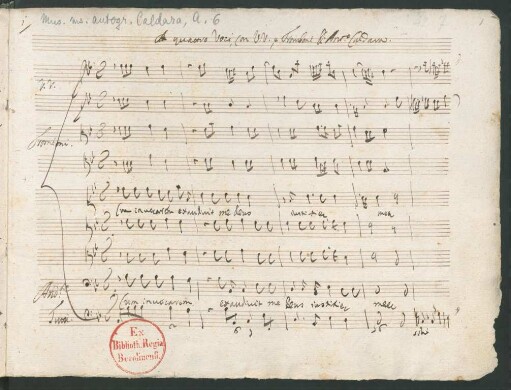 Mus. ms. autogr. Caldara, A. 6
A quattro Voci con VV. e Tromboni
V.V.
Tromboni
Cum invocarem exaudivit me Deus justitiæ meæ
Cum invocarem exaudivit me Deus justitiæ meæ
Ex
Biblioth. Regia
Berolinensi.